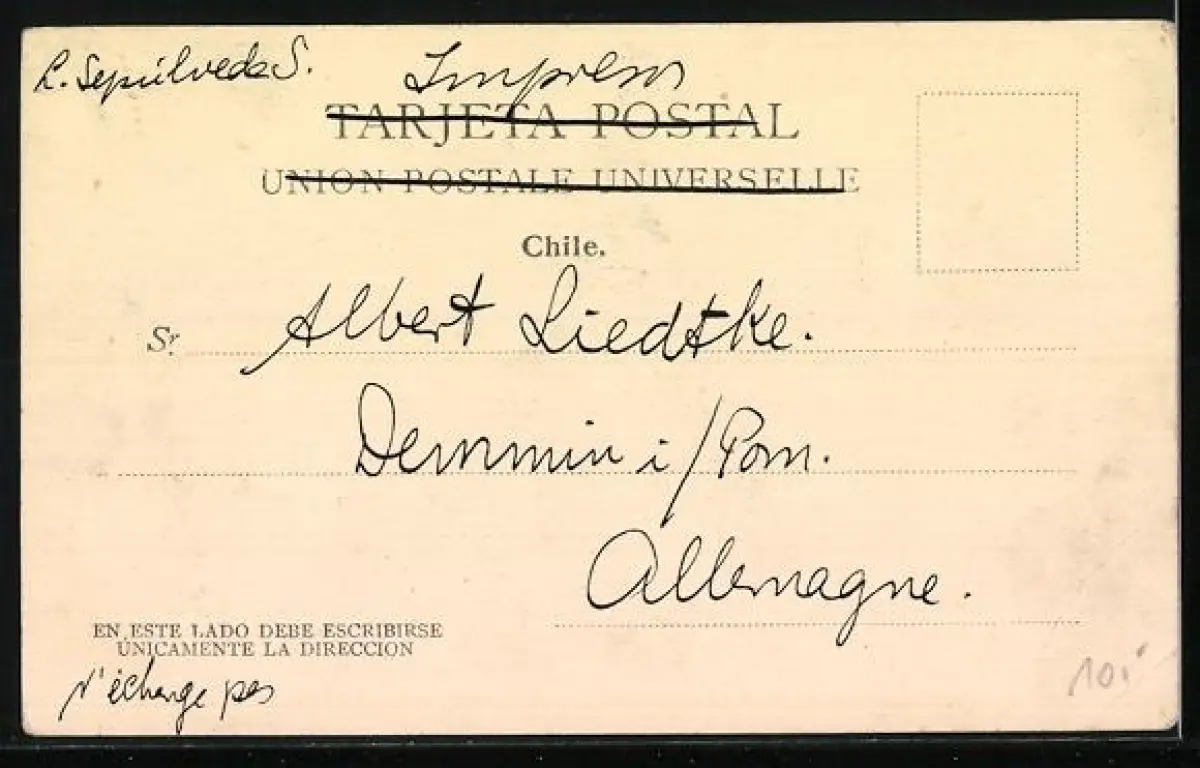 L. Sepúlveda S.
Impreso
TARJETA POSTAL
UNION POSTALE UNIVERSELLE
Chile.
Sr. Albert Liedtke.
Demmin i/Pom.
Allemagne.
EN ESTE LADO DEBE ESCRIBIRSE
ÚNICAMENTE LA DIRECCION
N'échange pas